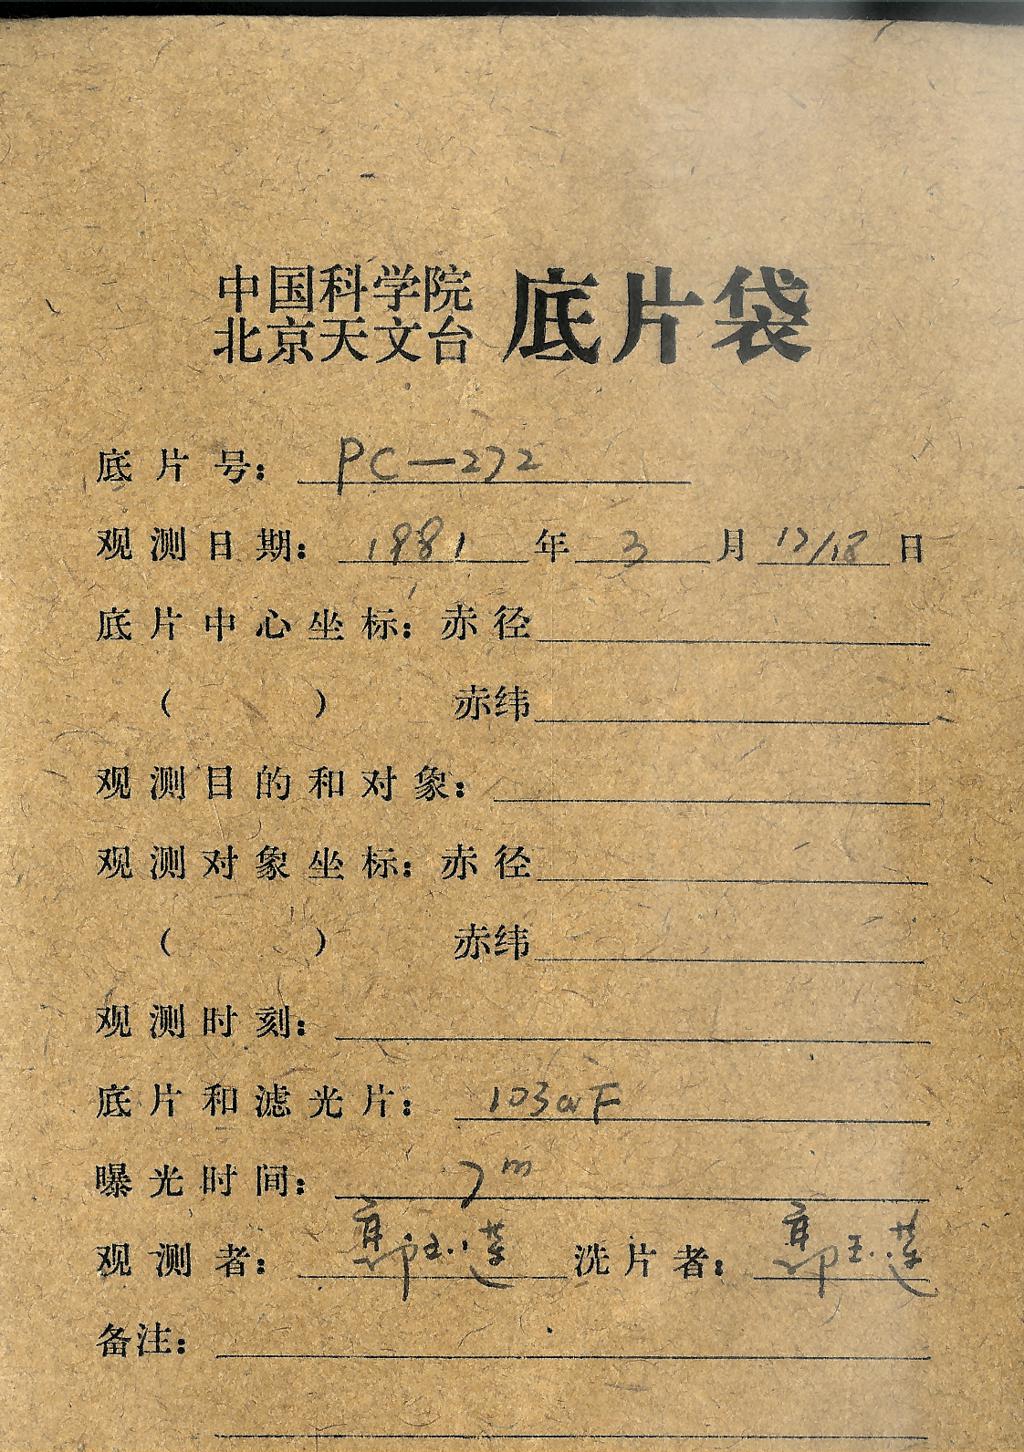 中国科学院
北京天文台 底片袋
底片号: PC—272
观测日期: 1981 年 3 月 17/18 日
底片中心坐标: 赤径
( ) 赤纬
观测目的和对象:
观测对象坐标: 赤径
( ) 赤纬
观测时刻:
底片和滤光片: 103aF
曝光时间: 7m
观测者: 郭玉莲 洗片者: 郭玉莲
备注: